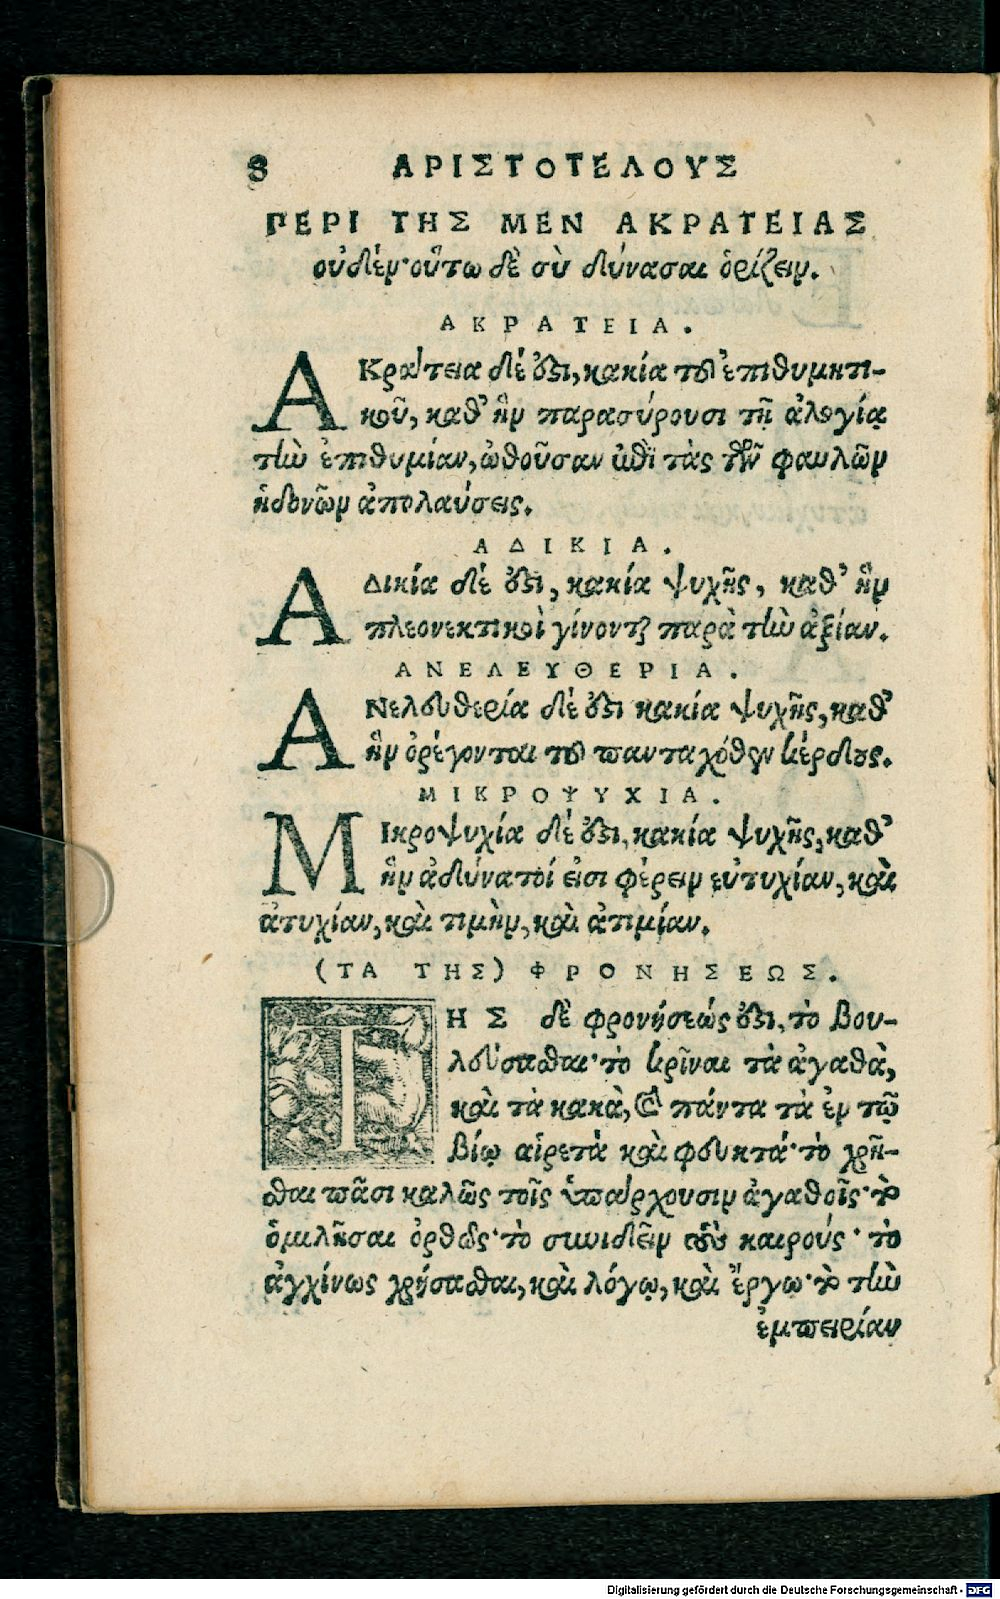 8 ΑΡΙΣΤΟΤΕΛΟΥΣ
ΠΕΡΙ ΤΗΣ ΜΕΝ ΑΚΡΑΤΕΙΑΣ
οὐδέν· οὕτω δὲ σὺ δύνασαι ὁρίζειν.
ΑΚΡΑΤΕΙΑ.
ΑΚράτεια δέ ὅτι, κακία τοῦ ἐπιθυμητι-
κοῦ, καθ’ ἣν παρασύρουσι τῇ ἀλογίᾳ
τὴν ἐπιθυμίαν, ὠθοῦσαν ἐπὶ τὰς τῶν φαυλῶν
ἡδονῶν ἀπολαύσεις.
ΑΔΙΚΙΑ.
ΑΔικία δέ ὅτι, κακία ψυχῆς, καθ’ ἣν
πλεονεκτικοὶ γίνονται παρὰ τὴν ἀξίαν.
ΑΝΕΛΕΥΘΕΡΙΑ.
ΑΝελευθερία δέ ὅτι κακία ψυχῆς, καθ’
ἣν ὀρέγονται τοῦ πανταχόθεν κέρδους.
ΜΙΚΡΟΨΥΧΙΑ.
ΜΙκροψυχία δέ ὅτι, κακία ψυχῆς, καθ’
ἣν ἀδύνατοί εἰσι φέρειν εὐτυχίαν, καὶ
ἀτυχίαν, καὶ τιμὴν, καὶ ἀτιμίαν.
(ΤΑ ΤΗΣ) ΦΡΟΝΗΣΕΩΣ.
ΤΗΣ δὲ φρονήσεώς ὅτι, τὸ βου-
λεύσασθαι· τὸ κρῖναι τὰ ἀγαθὰ,
καὶ τὰ κακὰ, καὶ πάντα τὰ ἐν τῷ
βίῳ αἱρετὰ καὶ φευκτά· τὸ χρῆ-
σθαι πᾶσι καλῶς τοῖς ὑπάρχουσιν ἀγαθοῖς· τὸ
ὁμιλῆσαι ὀρθῶς· τὸ συνιδεῖν τοὺς καιρούς· τὸ
ἀγχίνως χρήσασθαι, καὶ λόγῳ, καὶ ἔργῳ· τὸ τὴν
ἐμπειρίαν
Digitalisierung gefördert durch die Deutsche Forschungsgemeinschaft - DFG